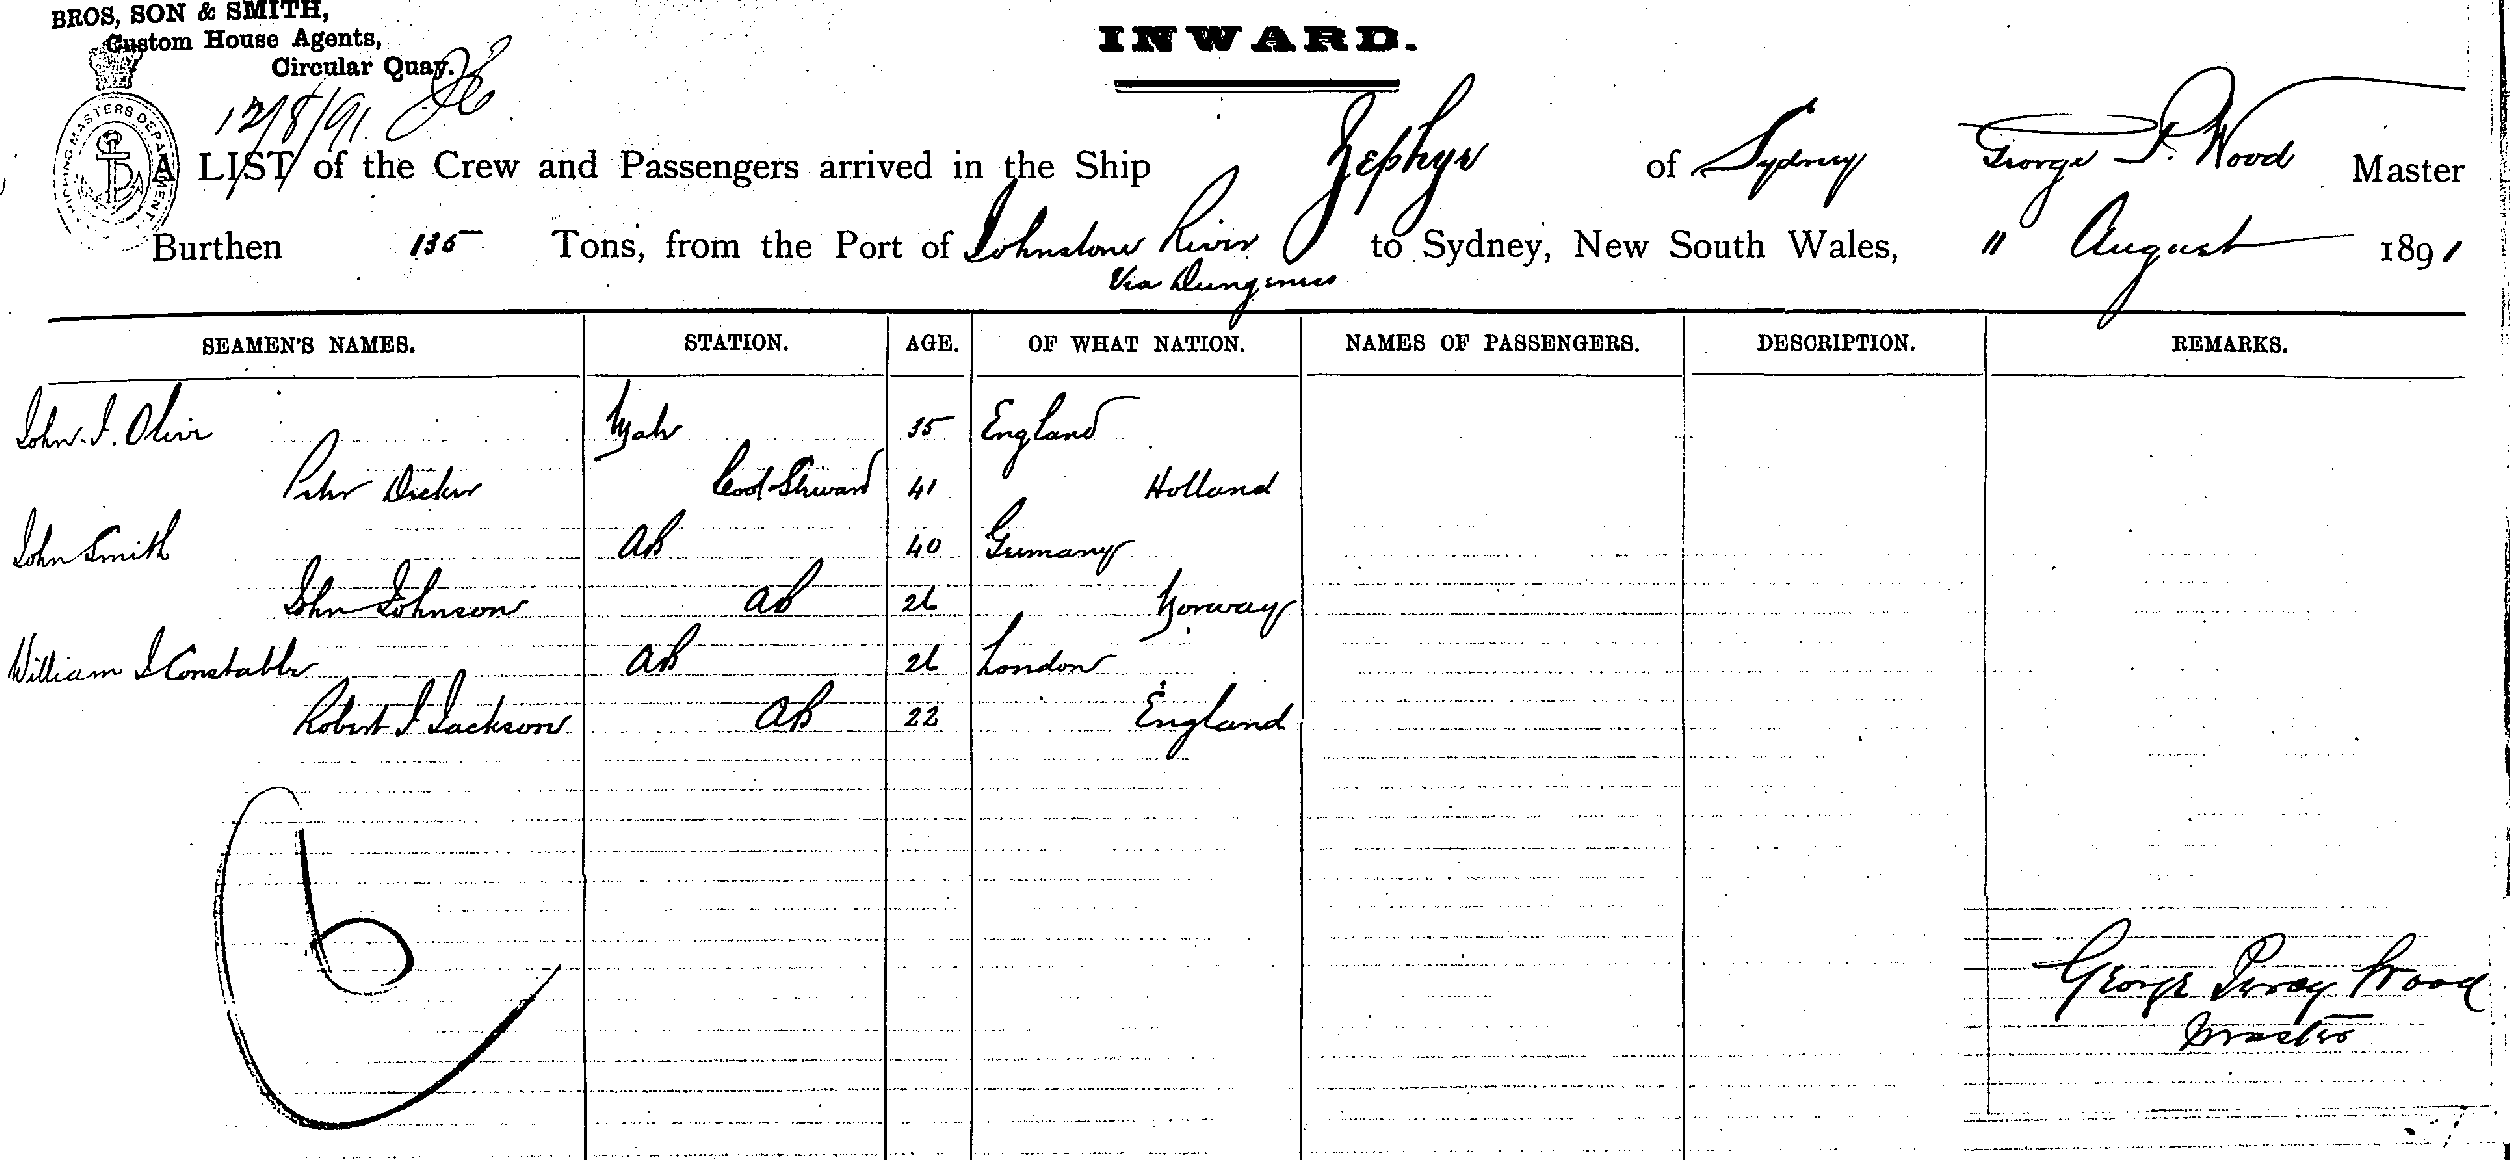 BROS, SON & SMITH,
Custom House Agents,
Circular Quay.
INWARD.
12/8/91
SHIPPING MASTERS DEPARTMENT
A LIST of the Crew and Passengers arrived in the Ship Zephyr of Sydney George P. Wood Master
Burthen 135 Tons, from the Port of Johnstone River to Sydney, New South Wales, 11 August 1891
Via Dungeness
SEAMEN'S NAMES. STATION. AGE. OF WHAT NATION. NAMES OF PASSENGERS. DESCRIPTION. REMARKS.
John. J. Oliver Mate 35 England
Peter Dicker Cook Steward 41 Holland
John Smith AB 40 Germany
John Johnson AB 26 Norway
William J Constable AB 26 London
Robert J Jackson AB 22 England
6
George Percy Wood
Master